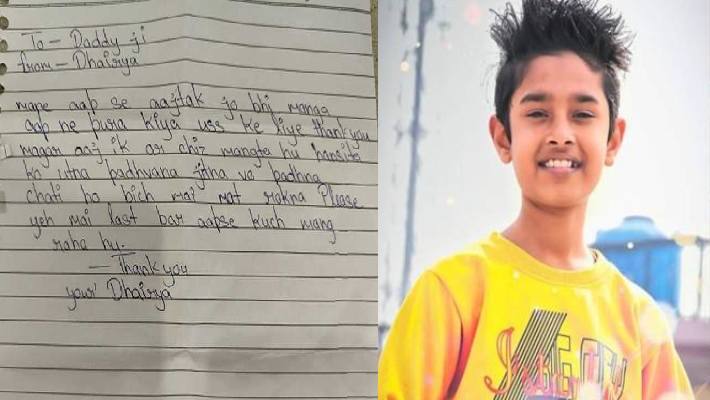 To - Daddy ji
from - Dhairya
mane aap se aajtak jo bhi manga
aap ne pura kiya uss ke liye thankyou
magar aaj ik or chiz mangta hu hansita
ko itna padhvana jitna vo padhna
chati ho bich mai mat rokna Please
yeh mai last bar aapse kuch mang
raha hu.
- Thankyou
your Dhairya